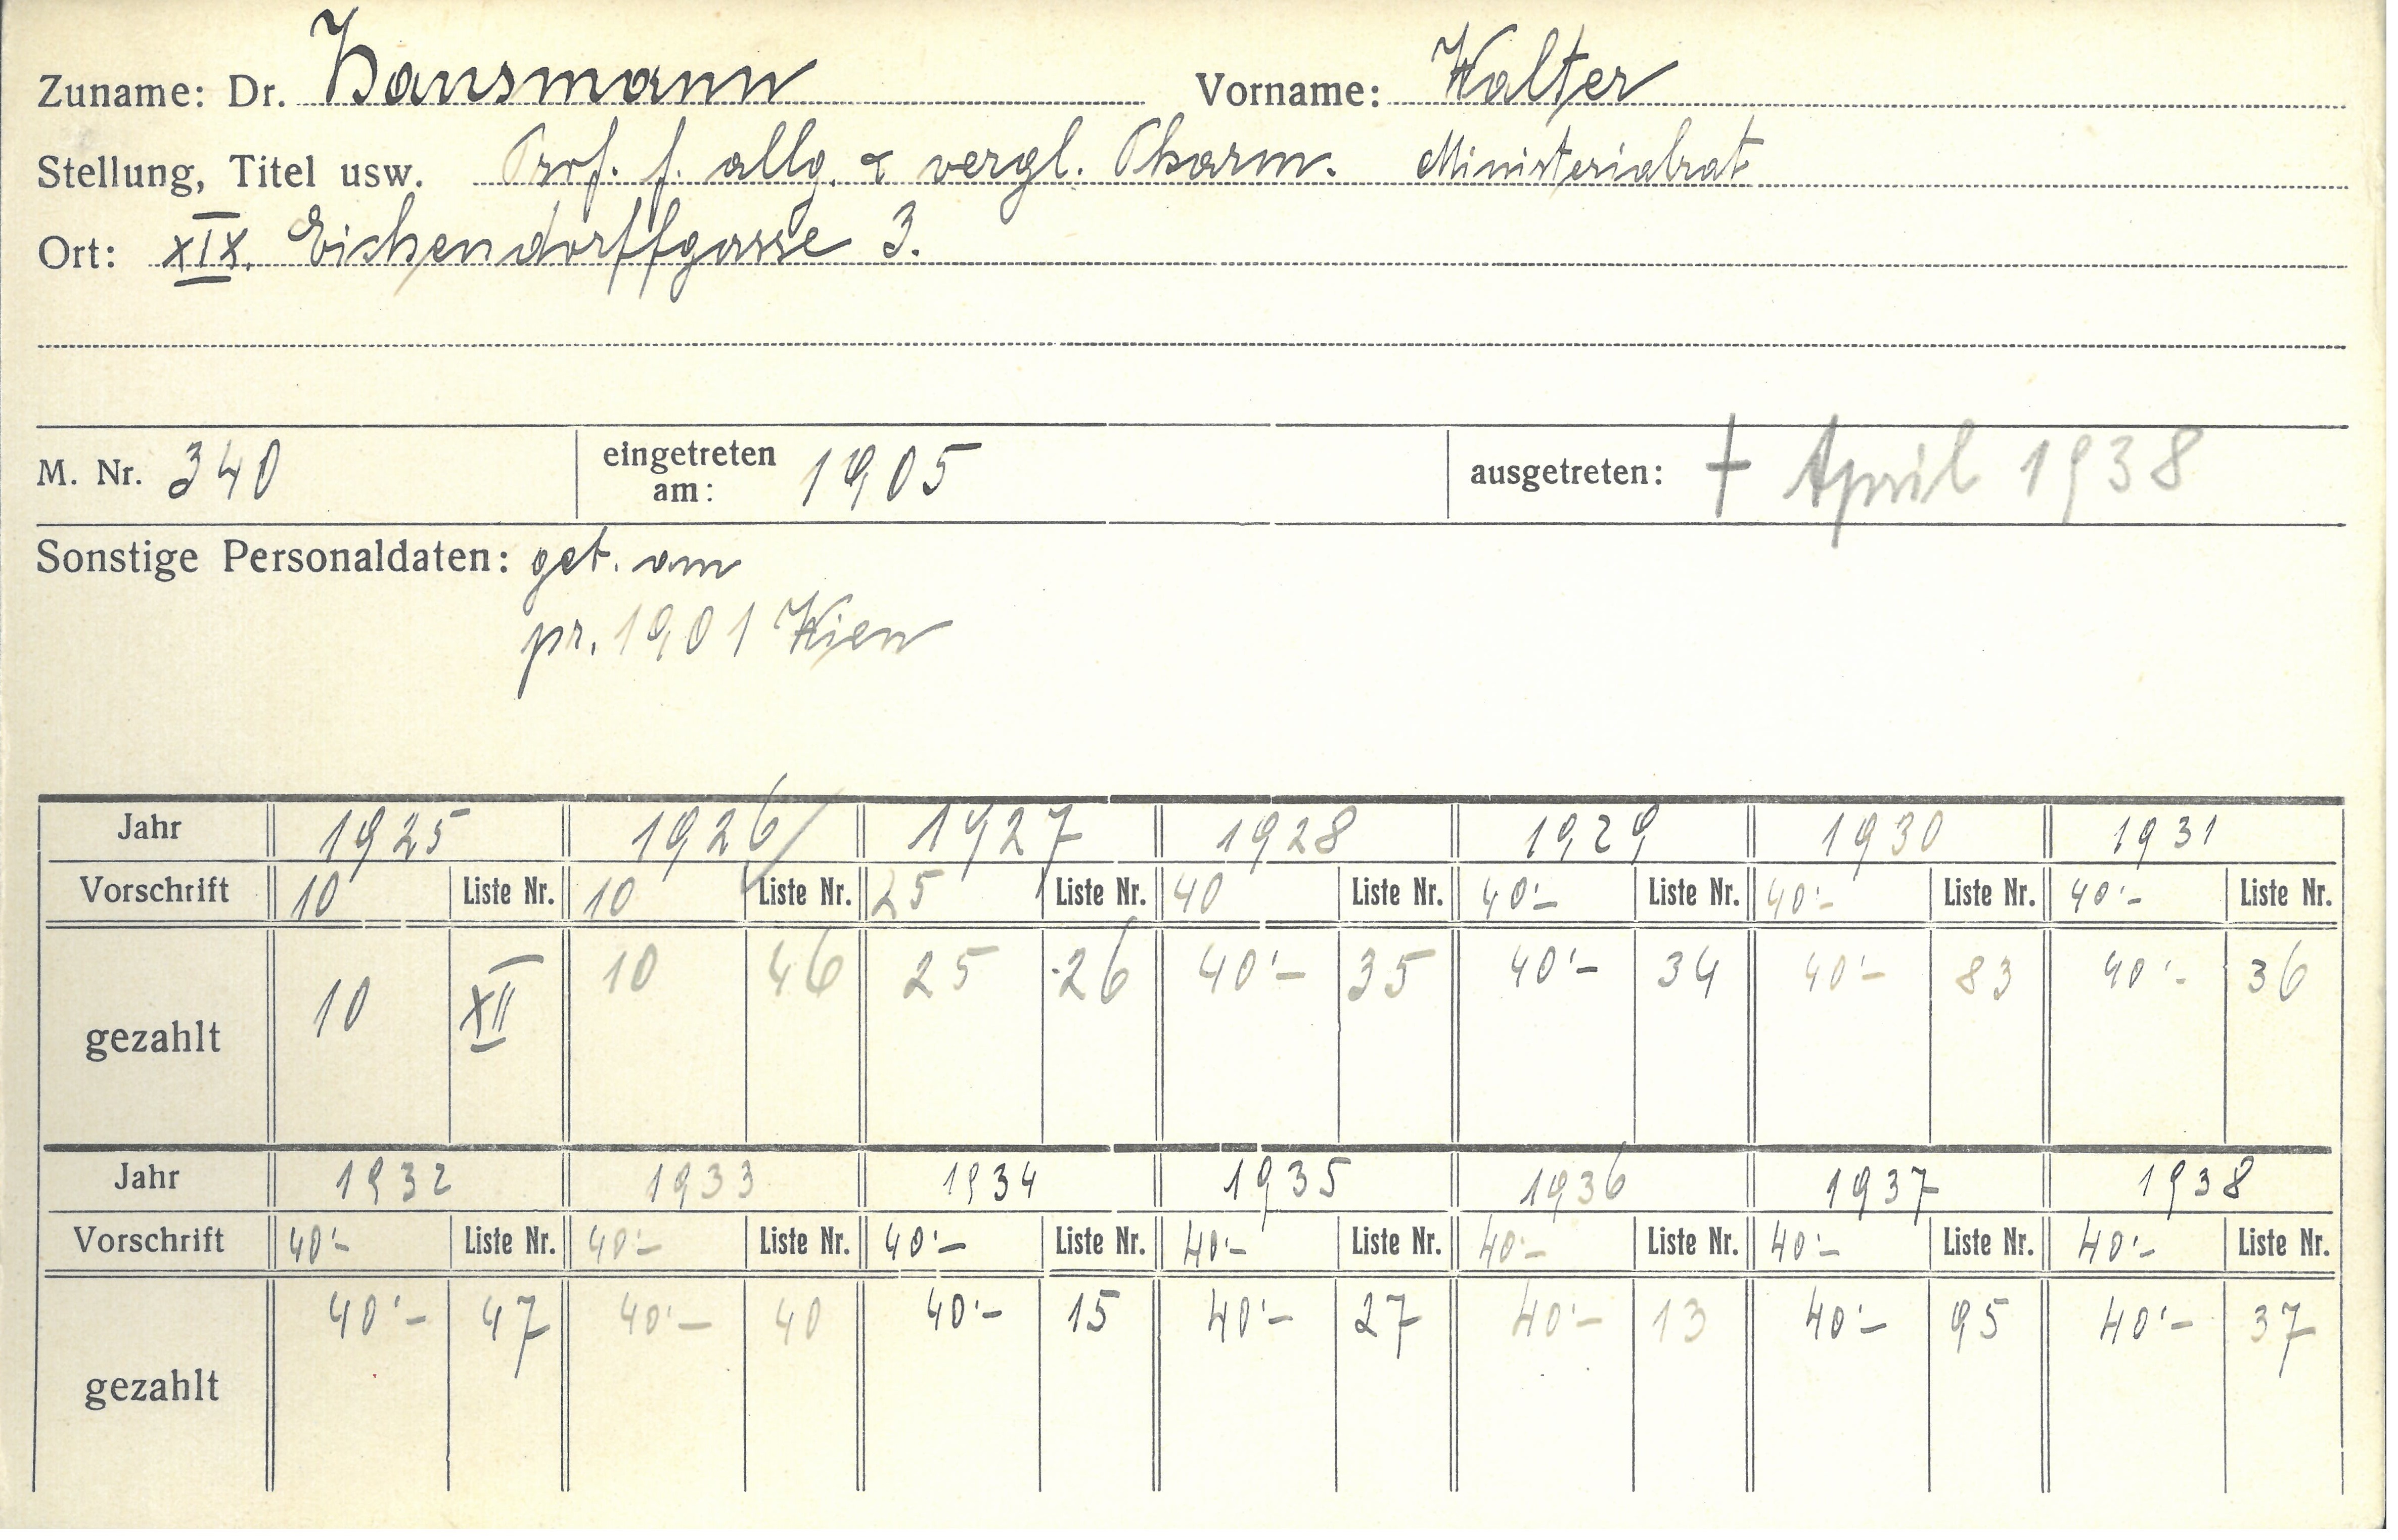 Zuname: Dr. Hausmann Vorname: Walter
Stellung, Titel usw. Prof. f. allg. & vergl. Pharm. Ministerialrat
Ort: XIX. Eichendorffgasse 3.
M. Nr. 340 eingetreten am: 1905 ausgetreten: † April 1938
Sonstige Personaldaten: geb. am
pr. 1901 Wien
Jahr 1925 1926 1927 1928 1929 1930 1931
Vorschrift 10 Liste Nr. 10 Liste Nr. 25 Liste Nr. 40 Liste Nr. 40'- Liste Nr. 40'- Liste Nr. 40'- Liste Nr.
gezahlt 10 XII 10 46 25 26 40'- 35 40'- 34 40'- 83 40'- 36
Jahr 1932 1933 1934 1935 1936 1937 1938
Vorschrift 40'- Liste Nr. 40'- Liste Nr. 40'- Liste Nr. 40'- Liste Nr. 40'- Liste Nr. 40'- Liste Nr. 40'- Liste Nr.
gezahlt 40'- 47 40'- 40 40'- 15 40'- 27 40'- 13 40'- 95 40'- 37